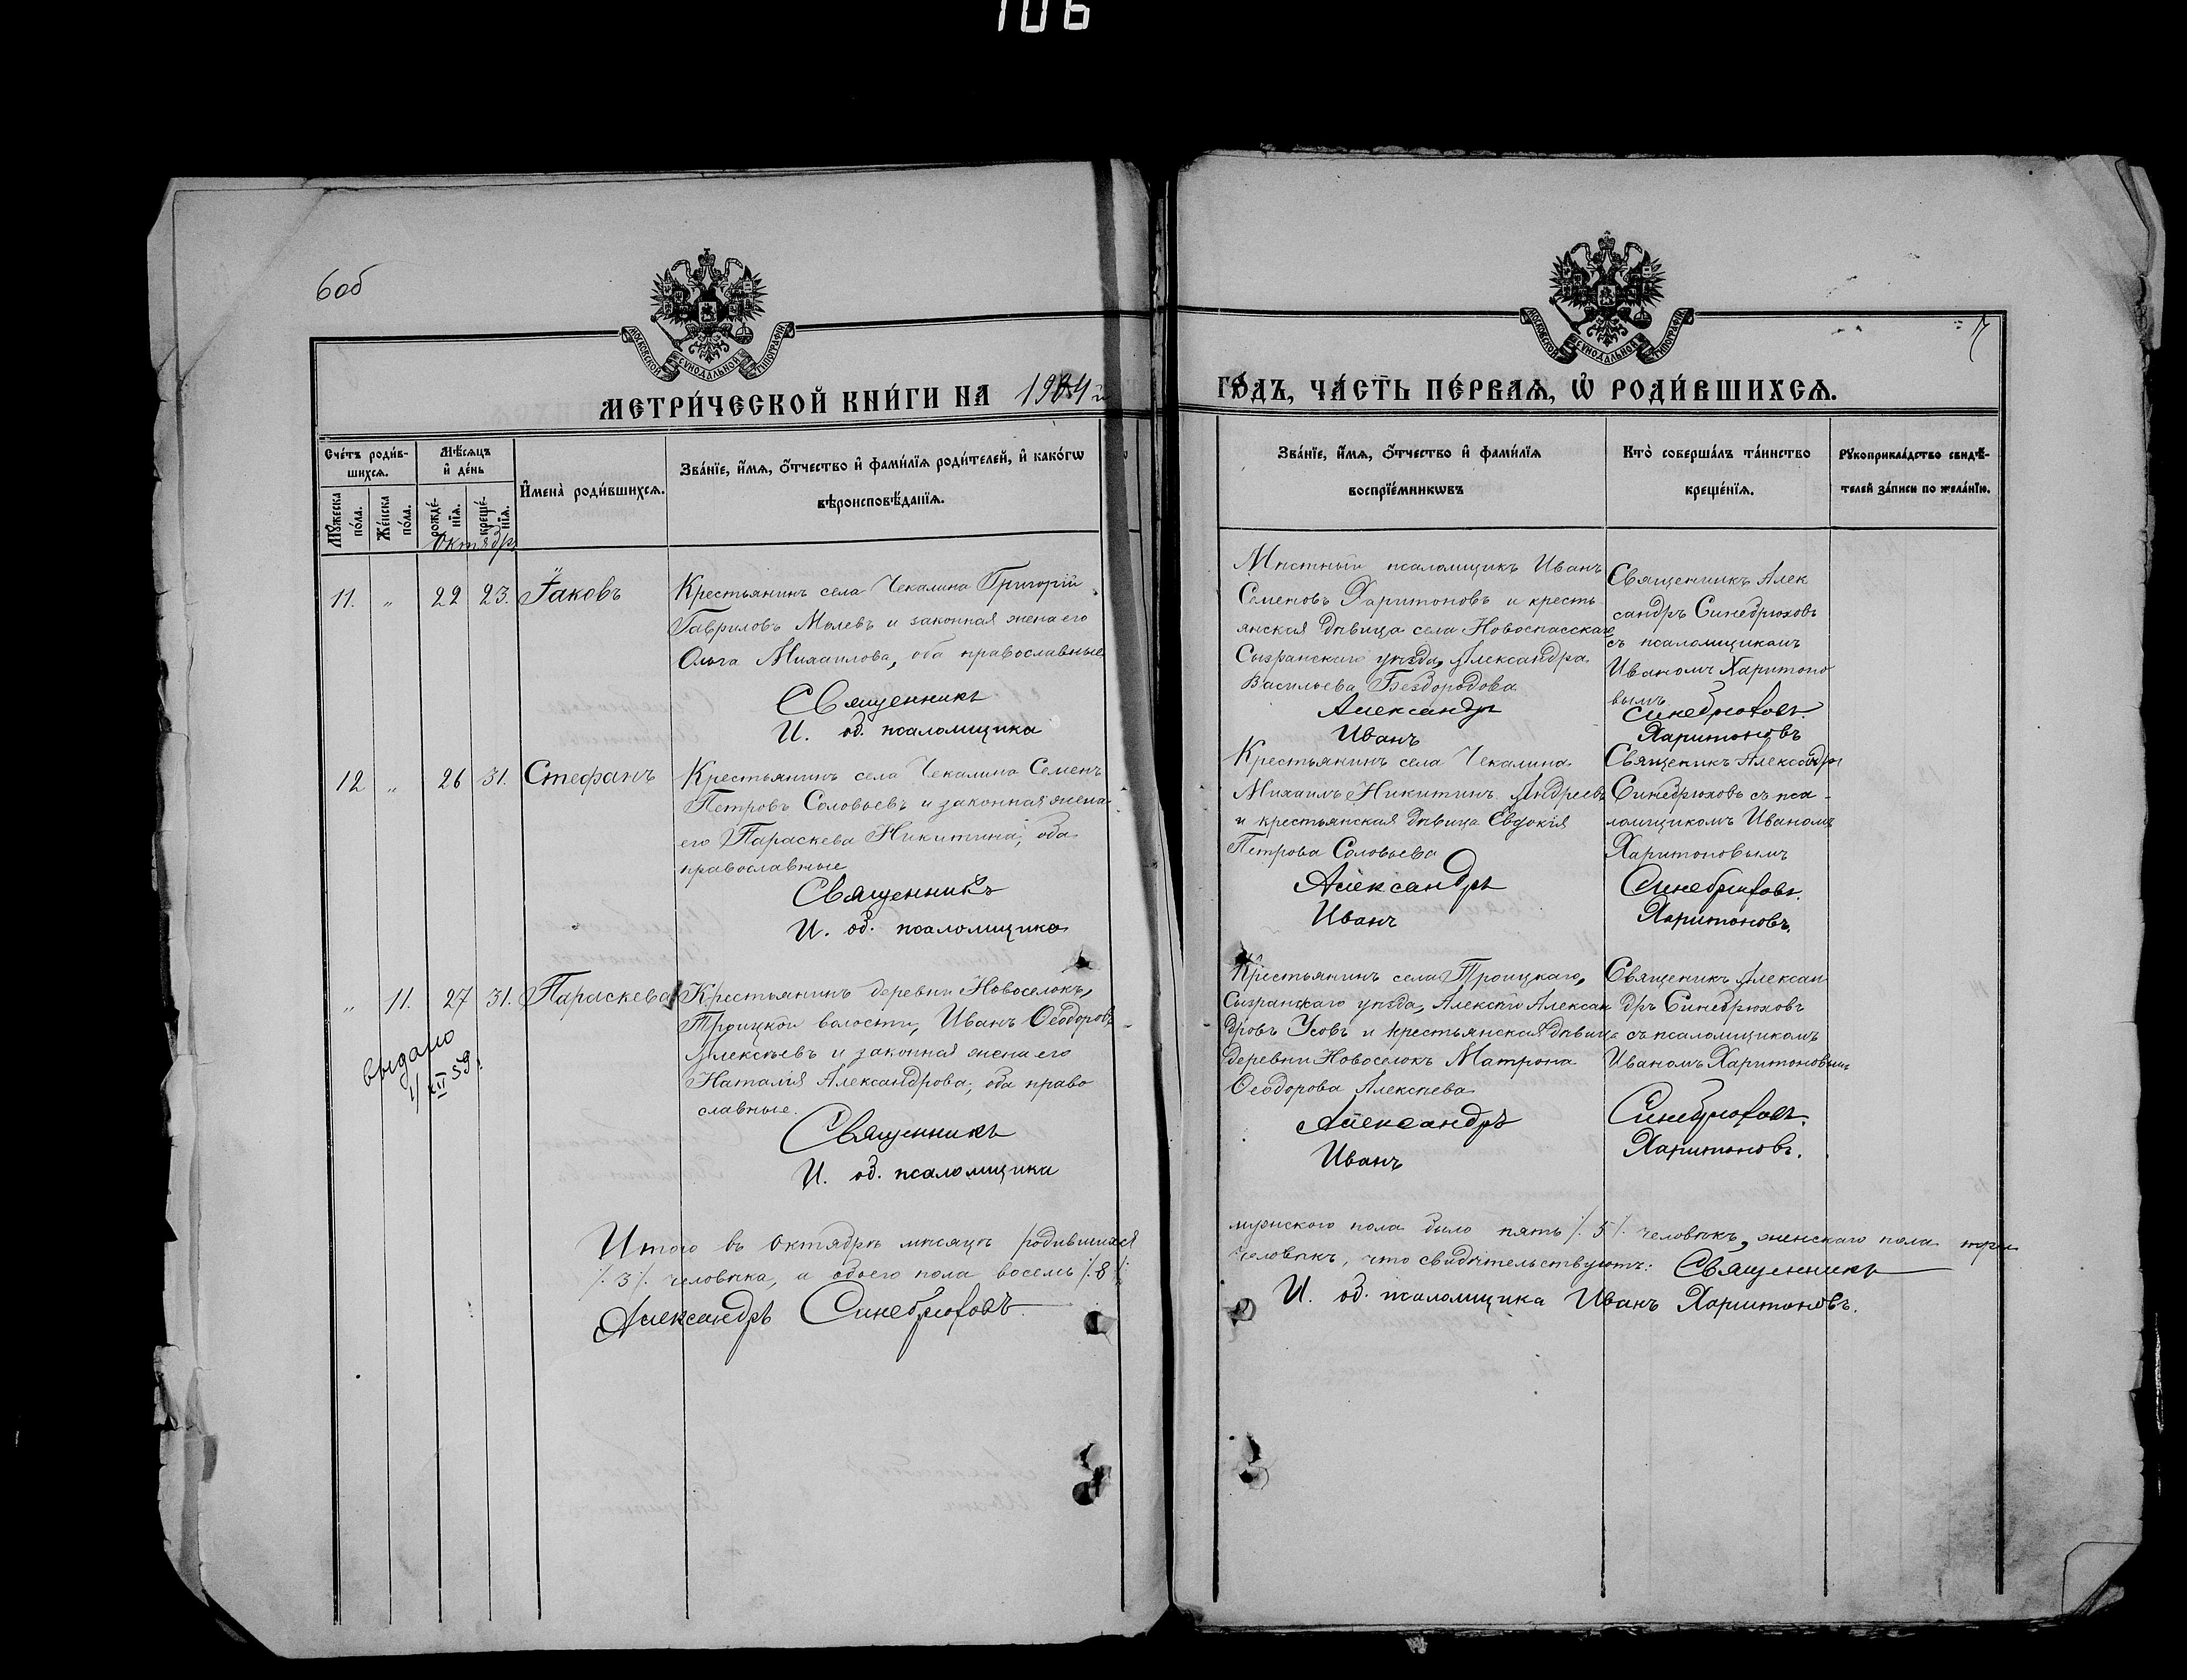 106
6об
7
МОСКОВСКОЙ СѴНОДАЛЬНОЙ ТИПОГРАФІИ
МОСКОВСКОЙ СѴНОДАЛЬНОЙ ТИПОГРАФІИ
МЕТРИ́ЧЕСКОЙ КНИ́ГИ НА 1904 й
ГО́ДЪ, ЧА́СТЬ ПЕ́РВАѦ, Ѡ҆ РОДИ́ВШИХСѦ.
Сче́тъ роди́в-
шихсѧ.
Мꙋ́жеска по́ла.
Же́нска по́ла.
Мѣ́сѧцъ
и҆ де́нь
рожде́-
нїѧ.
креще́-
нїѧ.
И҆мена̀ роди́вшихсѧ.
Зва́нїе, и҆́мѧ, ѻ҆́тчество и҆ фами́лїѧ роди́телей, и҆ како́гѡ
вѣроисповѣ́данїѧ.
Зва́нїе, и҆́мѧ, ѻ҆́тчество и҆ фами́лїѧ
воспрїе́мникѡвъ
Кто̀ соверша́лъ та́инство
креще́нїѧ.
Рꙋкоприкла́дство свидѣ́-
телей за́писи по жела́нїю.
Октябрь
11. " 22 23. Іаковъ
Крестьянинъ села Чекалина Григорій
Гавриловъ Мылевъ и законная жена его
Ольга Михаилова, оба православные
Священникъ
И. об. псаломщика
Мѣстный псаломщикъ Иванъ
Семеновъ Харитоновъ и кресть
янская дѣвица села Новоспасскаго
Сызранскаго уѣзда, Александра
Васильева Бездородова
Александръ
Иванъ
Священникъ Алек
сандръ Синебрюховъ
съ псаломщикомъ
Иваномъ Харитоно
вымъ
Синебрюховъ.
Харитоновъ
12 " 26 31. Стефанъ
Крестьянинъ села Чекалина Семенъ
Петровъ Соловьевъ и законная жена
его Параскева Никитина, оба
православные
Священникъ
И. об. псаломщика
Крестьянинъ села Чекалина
Михаилъ Никитинъ Андреевъ
и крестьянская дѣвица Евдокія
Петрова Соловьева
Александръ
Иванъ
Священикъ Александръ
Синебрюховъ съ пса-
ломщикомъ Иваномъ
Харитоновымъ
Синебрюховъ.
Харитоновъ.
" 11. 27 31. Параскева
выдано
1/XII 59.
Крестьянинъ деревни Новоселокъ,
Троицкой волости, Иванъ Ѳеодоровъ
Алексѣевъ и законная жена его
Наталія Александрова, оба право
славные.
Священникъ
И. об. псаломщика
Крестьянинъ села Троицкаго,
Сызранскаго уѣзда, Алексѣй Алексан
дровъ Усовъ и крестьянская дѣвица
деревни Новоселокъ Матрона
Ѳеодорова Алексѣева
Александръ
Иванъ
Священикъ Алексан
дръ Синебрюховъ
съ псаломщикомъ
Иваномъ Харитоновымъ
Синебрюховъ.
Харитоновъ.
Итого въ Октябрѣ мѣсяцѣ родившихся
мужского пола было пять /.5/. человѣкъ, женскаго пола три
/.3/. человѣка, а обоего пола восемь /.8/.
человѣкъ, что свидѣтельствуютъ: Священникъ
Александръ Синебрюховъ.
И. об. псаломщика Иванъ Харитоновъ.